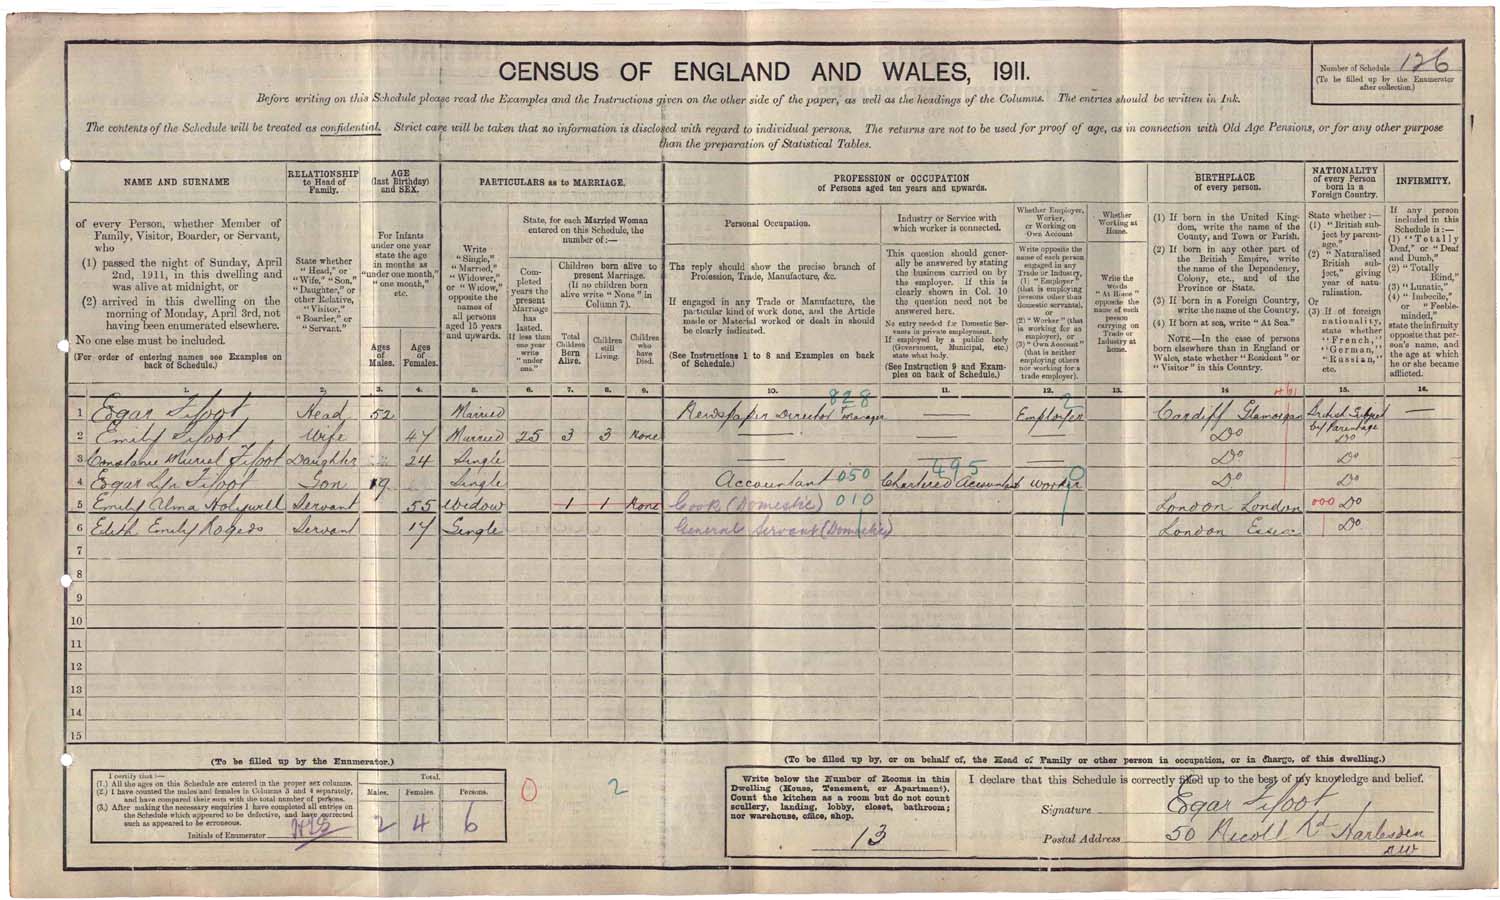 CENSUS OF ENGLAND AND WALES, 1911.
Number of Schedule 126
(To be filled up by the Enumerator
after collection.)
Before writing on this Schedule please read the Examples and the Instructions given on the other side of the paper, as well as the headings of the Columns. The entries should be written in Ink.
The contents of the Schedule will be treated as confidential. Strict care will be taken that no information is disclosed with regard to individual persons. The returns are not to be used for proof of age, as in connection with Old Age Pensions, or for any other purpose
than the preparation of Statistical Tables.
NAME AND SURNAME
of every Person, whether Member of
Family, Visitor, Boarder, or Servant,
who
(1) passed the night of Sunday, April
2nd, 1911, in this dwelling and
was alive at midnight, or
(2) arrived in this dwelling on the
morning of Monday, April 3rd, not
having been enumerated elsewhere.
No one else must be included.
(For order of entering names see Examples on
back of Schedule.)
RELATIONSHIP
to Head of
Family.
State whether
"Head," or
"Wife," "Son,"
"Daughter," or
other Relative,
"Visitor,"
"Boarder," or
"Servant."
AGE
(last Birthday)
and SEX.
For Infants
under one year
state the age
in months as
"under one month,"
"one month,"
etc.
Ages
of
Males.
Ages
of
Females.
PARTICULARS as to MARRIAGE.
Write
"Single,"
"Married,"
"Widower,"
or "Widow,"
opposite the
names of
all persons
aged 15 years
and upwards.
State, for each Married Woman
entered on this Schedule, the
number of:—
Completed
years the
present
Marriage
has
lasted.
If less than
one year
write
"under
one."
Children born alive to
present Marriage.
(If no children born
alive write "None" in
Column 7).
Total
Children
Born
Alive.
Children
still
Living.
Children
who
have
Died.
PROFESSION or OCCUPATION
of Persons aged ten years and upwards.
Personal Occupation.
The reply should show the precise branch of
Profession, Trade, Manufacture, &c.
If engaged in any Trade or Manufacture, the
particular kind of work done, and the Article
made or Material worked or dealt in should
be clearly indicated.
(See Instructions 1 to 8 and Examples on back
of Schedule.)
Industry or Service with
which worker is connected.
This question should gener-
ally be answered by stating
the business carried on by
the employer. If this is
clearly shown in Col. 10
the question need not be
answered here.
No entry needed for Domestic Ser-
vants in private employment.
If employed by a public body
(Government, Municipal, etc.)
state what body.
(See Instruction 9 and Exam-
ples on back of Schedule.)
Whether Employer,
Worker,
or Working on
Own Account
Write opposite the
name of each person
engaged in any
Trade or Industry,
(1) "Employer"
(that is employing
persons other than
domestic servants),
or
(2) "Worker" (that
is working for an
employer), or
(3) "Own Account"
(that is neither
employing others
nor working for a
trade employer).
Whether
Working at
Home.
Write the
words
"At Home"
opposite the
name of each
person
carrying on
Trade or
Industry at
home.
BIRTHPLACE
of every person.
(1) If born in the United King-
dom, write the name of the
County, and Town or Parish.
(2) If born in any other part of
the British Empire, write
the name of the Dependency,
Colony, etc., and of the
Province or State.
(3) If born in a Foreign Country,
write the name of the Country.
(4) If born at sea, write "At Sea."
NOTE.—In the case of persons
born elsewhere than in England or
Wales, state whether "Resident" or
"Visitor" in this Country.
NATIONALITY
of every Person
born in a
Foreign Country.
State whether :—
(1) "British sub-
ject by parent-
age."
(2) "Naturalised
British sub-
ject," giving
year of natu-
ralisation.
Or
(3) If of foreign
nationality,
state whether
"French,"
"German,"
"Russian,"
etc.
INFIRMITY.
If any person
included in this
Schedule is :—
(1) "Totally
Deaf," or "Deaf
and Dumb,"
(2) "Totally
Blind,"
(3) "Lunatic,"
(4) "Imbecile,"
or "Feeble-
minded,"
state the infirmity
opposite that per-
son's name, and
the age at which
he or she became
afflicted.
1. 2. 3. 4. 5. 6. 7. 8. 9. 10. 11. 12. 13. 14 15. 16.
828 2 461
1 Edgar Fifoot Head 52 Married Newspaper Director Manager — Employer Cardiff Glamorgan British Subject by Parentage —
2 Emily Fifoot Wife 47 Married 25 3 3 None — — — Do Do
3 Constance Muriel Fifoot Daughter 24 Single — — — Do Do
4 Edgar Fifoot Son 19 Single Accountant 050 Chartered Accountant 495 Worker 0 Do Do
5 Emily Alma Holywell Servant 55 Widow 1 1 None Cook (Domestic) 010 London London 000 Do
6 Edith Emily Rogers Servant 17 Single General Servant (Domestic) London Essex Do
7
8
9
10
11
12
13
14
15
(To be filled up by the Enumerator.)
I certify that:—
(1.) All the ages on this Schedule are entered in the proper sex columns.
(2.) I have counted the males and females in Columns 3 and 4 separately,
and have compared their sum with the total number of persons.
(3.) After making the necessary enquiries I have completed all entries on
the Schedule which appeared to be defective, and have corrected
such as appeared to be erroneous.
Initials of Enumerator
Total.
Males. Females. Persons.
2 4 6
0 2
(To be filled up by, or on behalf of, the Head of Family or other person in occupation, or in charge, of this dwelling.)
Write below the Number of Rooms in this
Dwelling (House, Tenement, or Apartment).
Count the kitchen as a room but do not count
scullery, landing, lobby, closet, bathroom;
nor warehouse, office, shop.
13
I declare that this Schedule is correctly filled up to the best of my knowledge and belief.
Signature Edgar Fifoot
Postal Address 50 Nicoll Rd Harlesden
NW